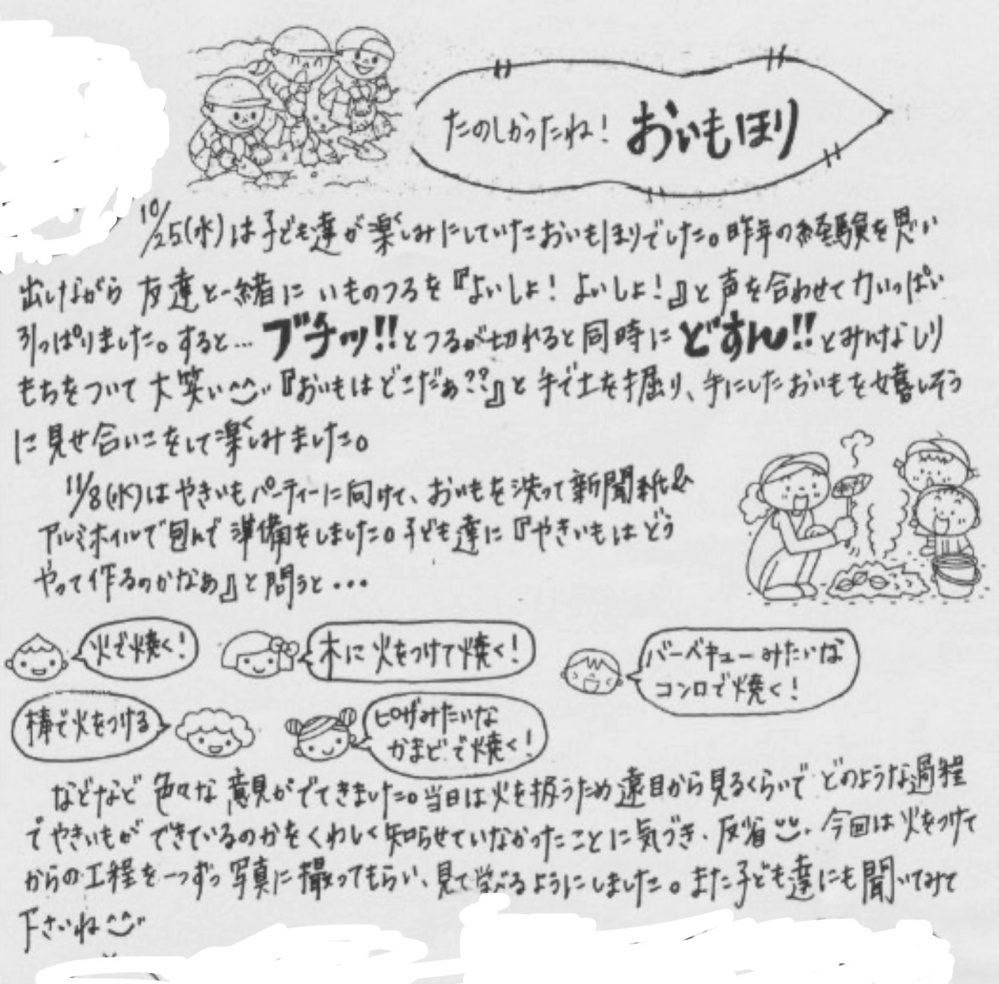 たのしかったね! おいもほり
10/25(水)は子ども達が楽しみにしていたおいもほりでした。昨年の経験を思い
出しながら 友達と一緒に いものつるを『よいしょ! よいしょ!』と声を合わせて力いっぱい
引っぱりました。すると… ブチッ!!とつるが切れると同時に どすん!!とみんなしり
もちをついて 大笑い^^『おいもはどこだぁ??』と手で土を掘り、手にしたおいもを嬉しそう
に見せ合いこをして楽しみました。
11/8(水)はやきいもパーティーに向けて、おいもを洗って新聞紙&
アルミホイルで包んで準備をしました。子ども達に『やきいもはどう
やって作るのかなぁ』と問うと・・・
火で焼く!
木に火をつけて焼く!
バーベキューみたいな
コンロで焼く!
棒で火をつける
ピザみたいな
かまどで焼く!
などなど色々な意見がでてきました。当日は火を扱うため遠目から見るくらいで どのような過程
でやきいもができているのかをくわしく知らせていなかったことに気づき、反省。今回は火をつけて
からの工程を一つずつ写真に撮ってもらい、見て学べるようにしました。また子ども達にも聞いてみて
下さいね^^